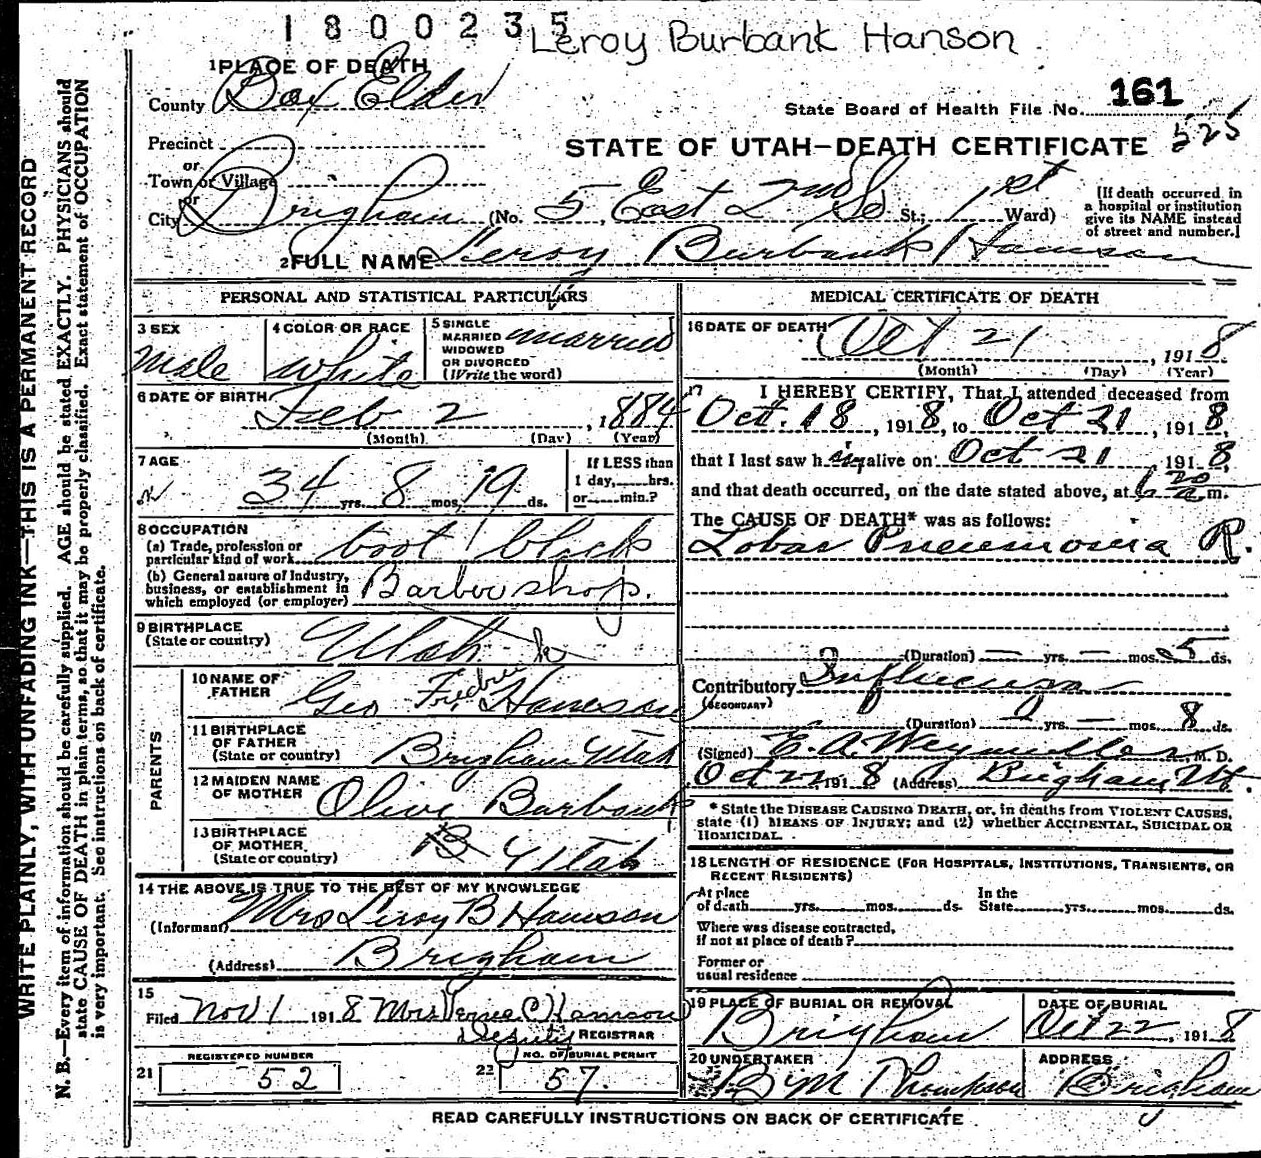 1800235
Leroy Burbank Hanson
1 PLACE OF DEATH
County Box Elder
State Board of Health File No. 161
525
Precinct
STATE OF UTAH—DEATH CERTIFICATE
or
Town or Village
or
City Brigham (No. 5 East 2nd So St.; 1st Ward)
[If death occurred in a hospital or institution give its NAME instead of street and number.]
2 FULL NAME Leroy Burbank Hanson
PERSONAL AND STATISTICAL PARTICULARS
3 SEX Male
4 COLOR OR RACE white
5 SINGLE MARRIED WIDOWED OR DIVORCED (Write the word) married
6 DATE OF BIRTH Feb 2, 1884
(Month) (Day) (Year)
7 AGE 34 yrs. 8 mos. 19 ds.
If LESS than 1 day, hrs. or min.?
8 OCCUPATION
(a) Trade, profession or particular kind of work boot black
(b) General nature of Industry, business, or establishment in which employed (or employer) Barber shop.
9 BIRTHPLACE (State or country) Utah
PARENTS
10 NAME OF FATHER Geo Hanson
11 BIRTHPLACE OF FATHER (State or country) Brigham Utah
12 MAIDEN NAME OF MOTHER Olive Burbank
13 BIRTHPLACE OF MOTHER (State or country) Utah
14 THE ABOVE IS TRUE TO THE BEST OF MY KNOWLEDGE
(Informant) Mrs Leroy B Hanson
(Address) Brigham
15
Filed Nov 1 1918 Mrs C Hanson
Deputy REGISTRAR
REGISTERED NUMBER
21 52
NO. OF BURIAL PERMIT
22 57.
MEDICAL CERTIFICATE OF DEATH
16 DATE OF DEATH Oct 21, 1918
(Month) (Day) (Year)
17 I HEREBY CERTIFY, That I attended deceased from
Oct. 18, 1918, to Oct 21, 1918,
that I last saw him alive on Oct 21, 1918,
and that death occurred, on the date stated above, at a m.
The CAUSE OF DEATH* was as follows:
Lobar Pneumonia R.
(Duration) — yrs. — mos. 5 ds.
Contributory Influenza
(SECONDARY)
(Duration) yrs. — mos. 8 ds.
(Signed) E. A. Weymuller, M. D.
Oct 22, 1918 (Address) Brigham, Ut.
* State the DISEASE CAUSING DEATH, or, in deaths from VIOLENT CAUSES,
state (1) MEANS OF INJURY; and (2) whether ACCIDENTAL, SUICIDAL OR
HOMICIDAL.
18 LENGTH OF RESIDENCE (FOR HOSPITALS, INSTITUTIONS, TRANSIENTS, OR
RECENT RESIDENTS)
At place of death yrs. mos. ds. In the State yrs. mos. ds.
Where was disease contracted,
if not at place of death?
Former or
usual residence
19 PLACE OF BURIAL OR REMOVAL Brigham
DATE OF BURIAL Oct 22, 1918
20 UNDERTAKER B M Thompson
ADDRESS Brigham
READ CAREFULLY INSTRUCTIONS ON BACK OF CERTIFICATE
WRITE PLAINLY, WITH UNFADING INK—THIS IS A PERMANENT RECORD
N. B.—Every item of information should be carefully supplied. AGE should be stated EXACTLY. PHYSICIANS should
state CAUSE OF DEATH in plain terms, so that it may be properly classified. Exact statement of OCCUPATION
is very important. See instructions on back of certificate.